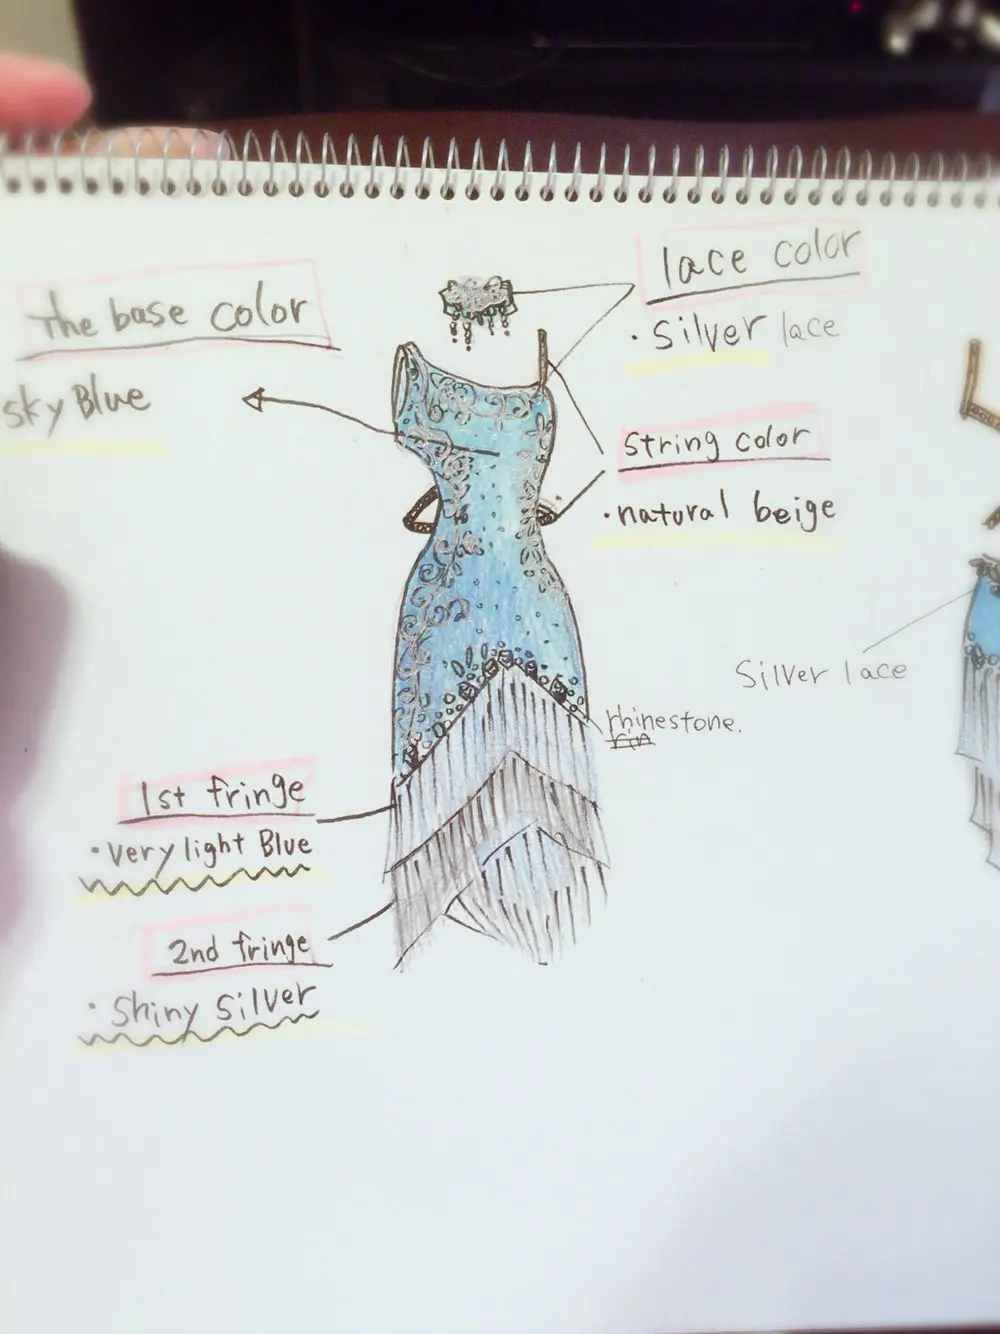 lace color
· silver lace
the base color
sky Blue
string color
· natural beige
silver lace
rhinestone.
rin
1st fringe
· very light Blue
2nd fringe
· shiny silver